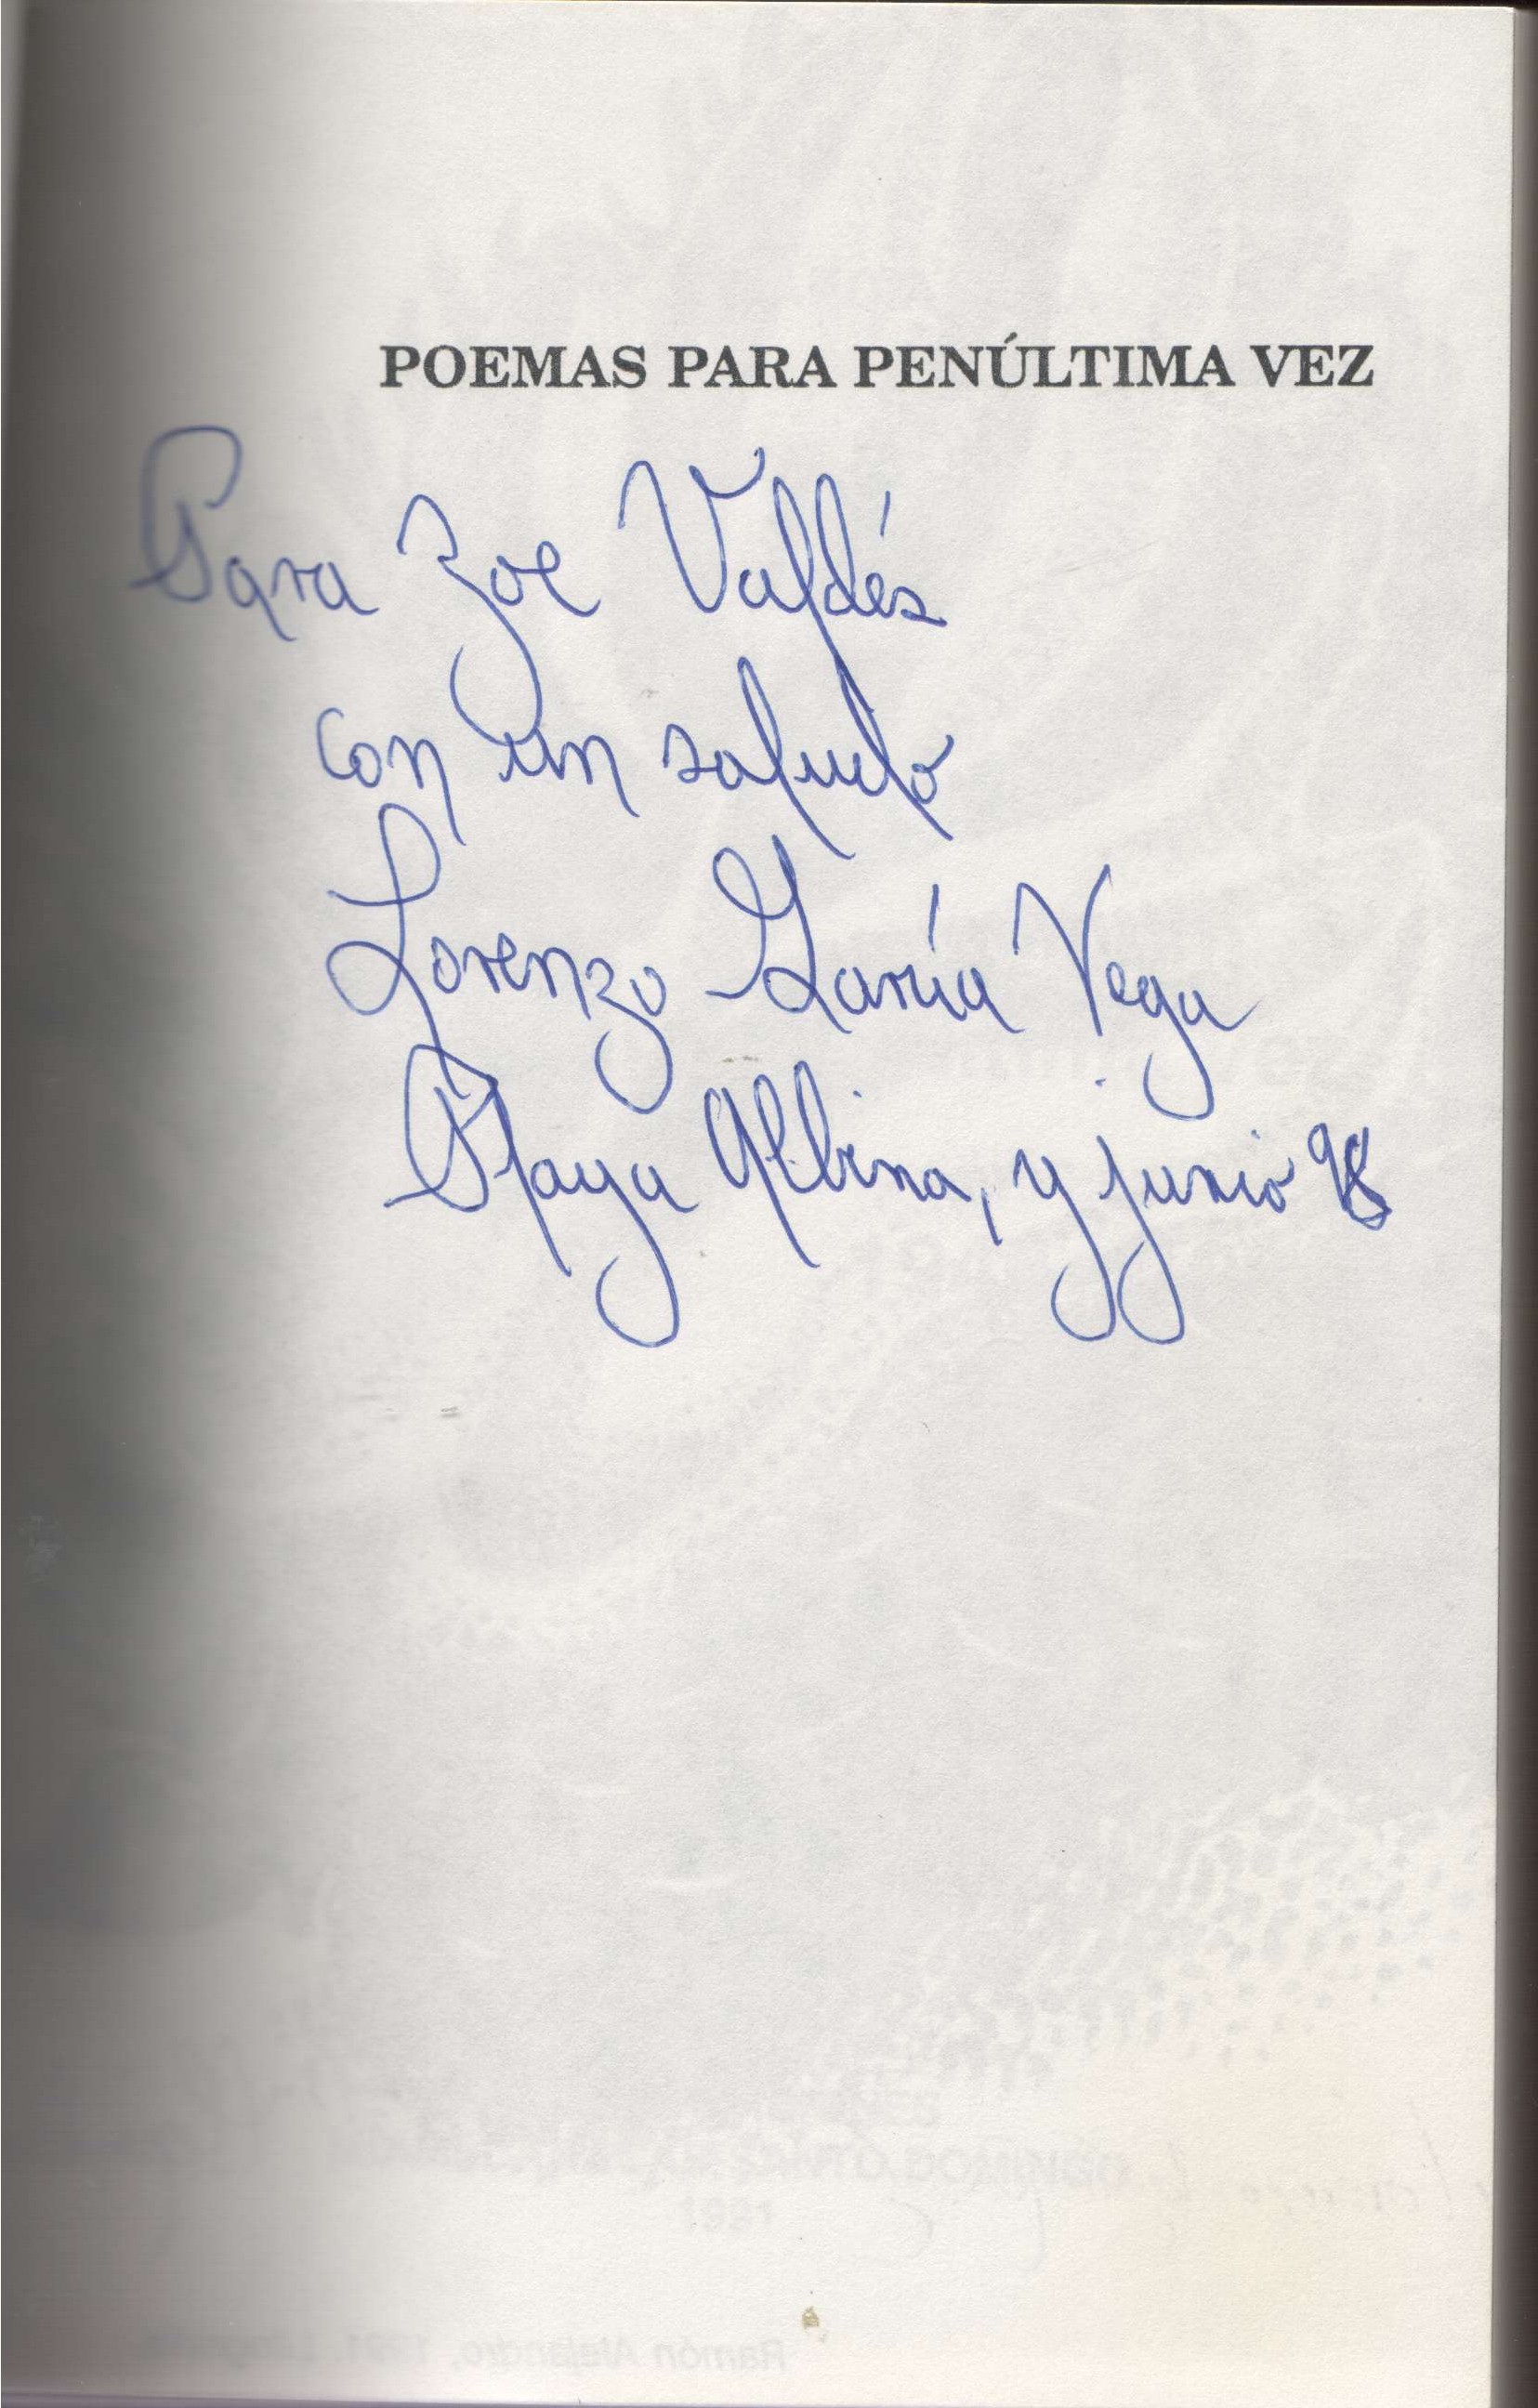 POEMAS PARA PENÚLTIMA VEZ
Para Zoe Valdés
con un saludo
Lorenzo García Vega
Playa Albina, y junio 98
1991
Ramón Alejandro, 1991.